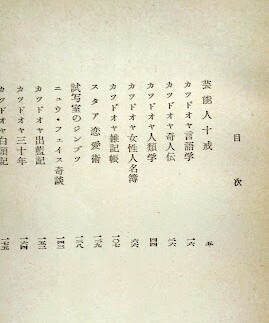 目次
芸能人十戒 五
カツドオヤ言語学 一六
カツドオヤ奇人伝 二六
カツドオヤ人類学 四四
カツドオヤ女性人名簿 六六
カツドオヤ雑記帳 一〇七
スタア恋愛術 一二九
試写室のジンブツ 一三八
ニュウ・フェイス奇談 一四三
カツドオヤ出藍記 一五二
カツドオヤ三十年 一六四
カツドオヤ白頭記 一七五